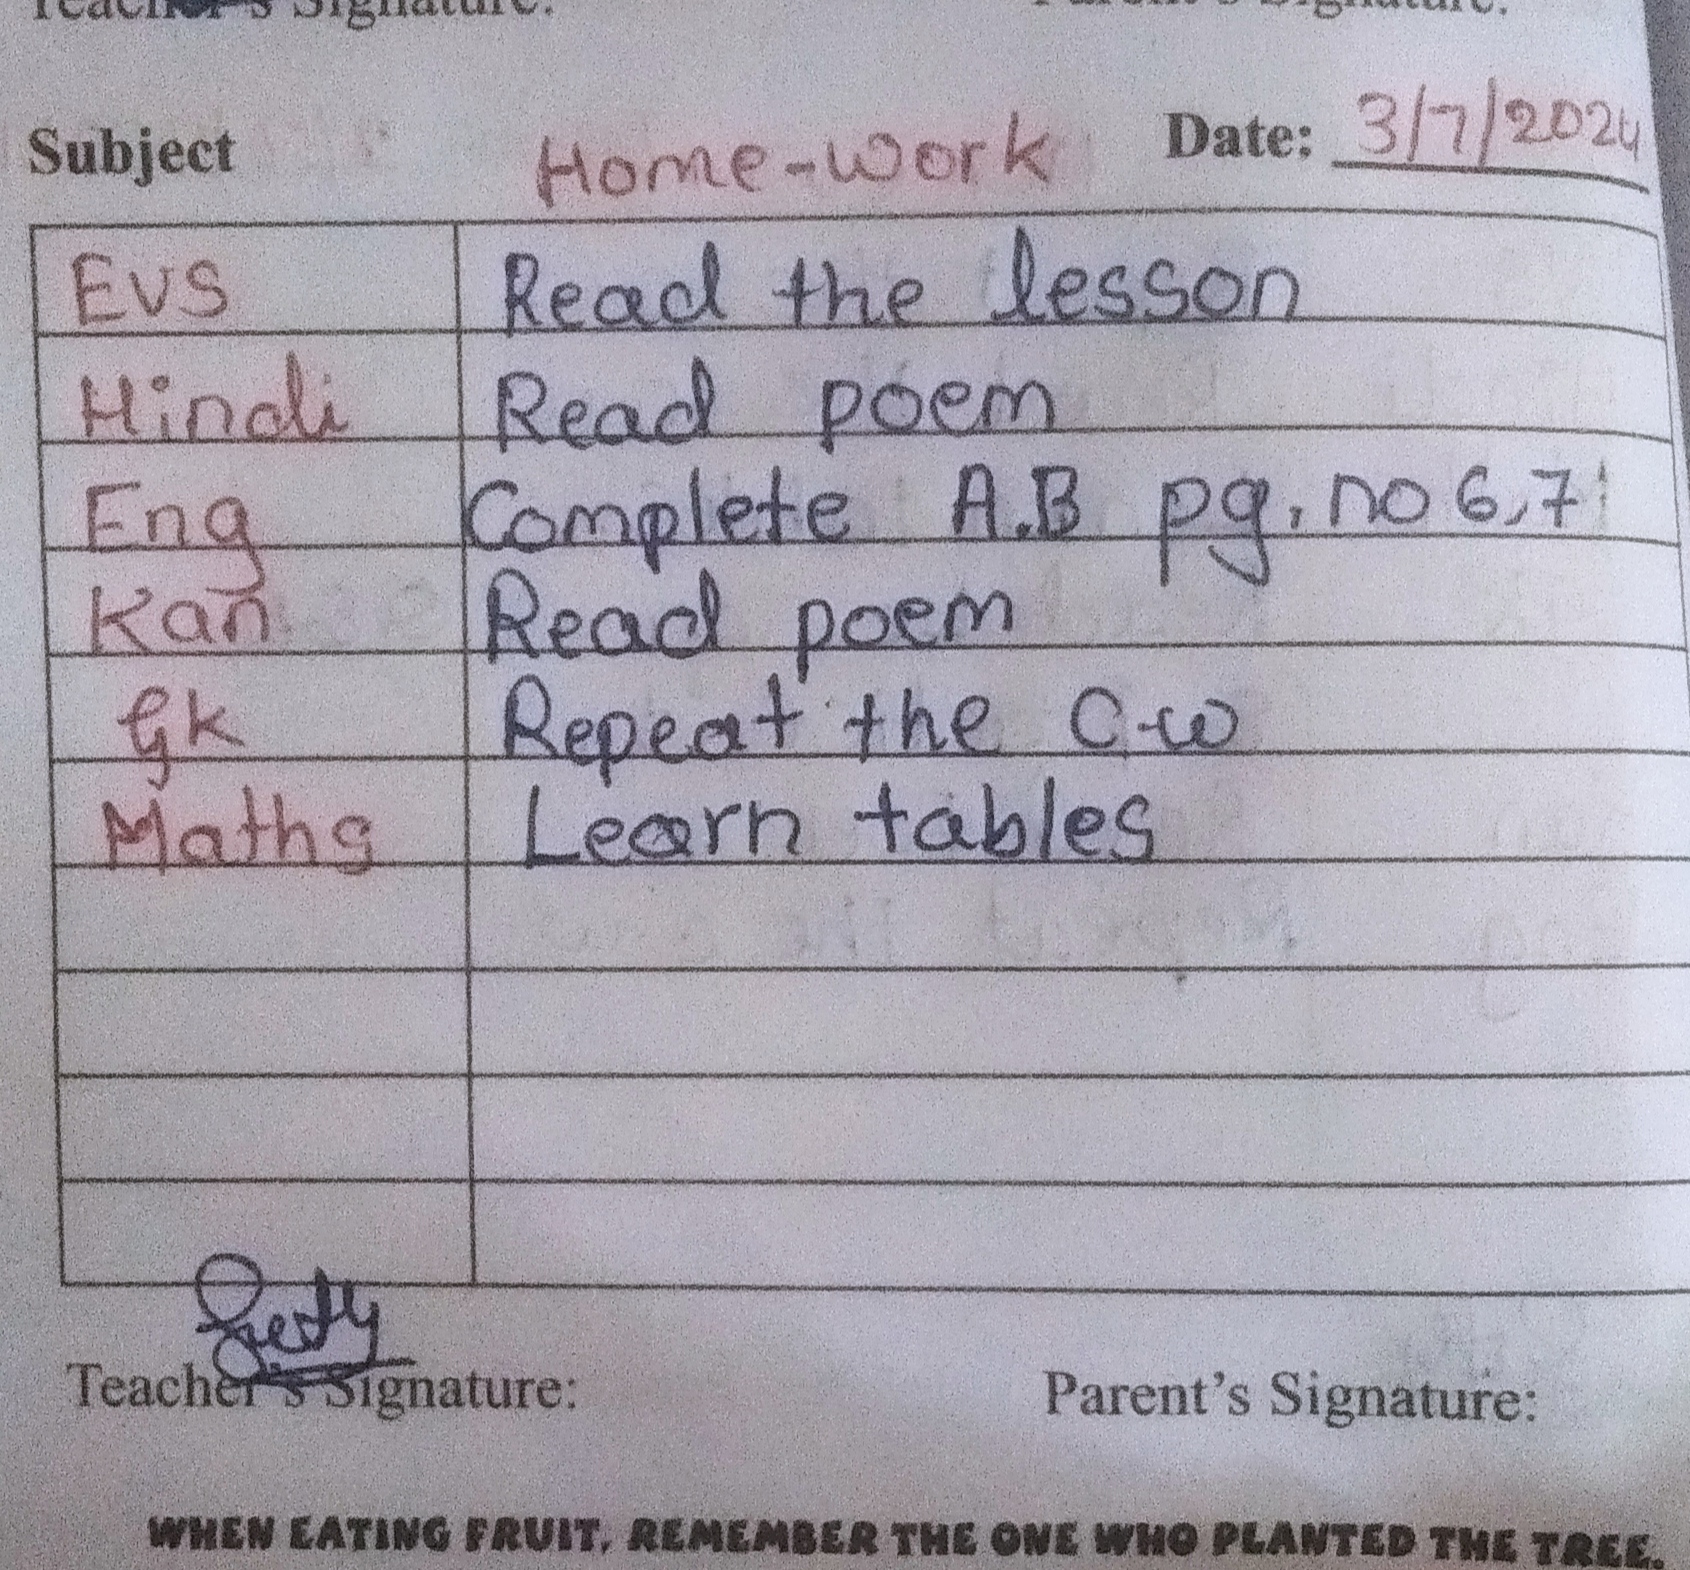 Teacher's Signature: Parent's Signature:
Subject Home-work Date: 3/7/2024
EVS Read the lesson
Hindi Read poem
Eng Complete A.B pg. no 6,7
Kan Read poem
Gk Repeat the C-w
Maths Learn tables
Teacher's Signature: Parent's Signature:
WHEN EATING FRUIT, REMEMBER THE ONE WHO PLANTED THE TREE.